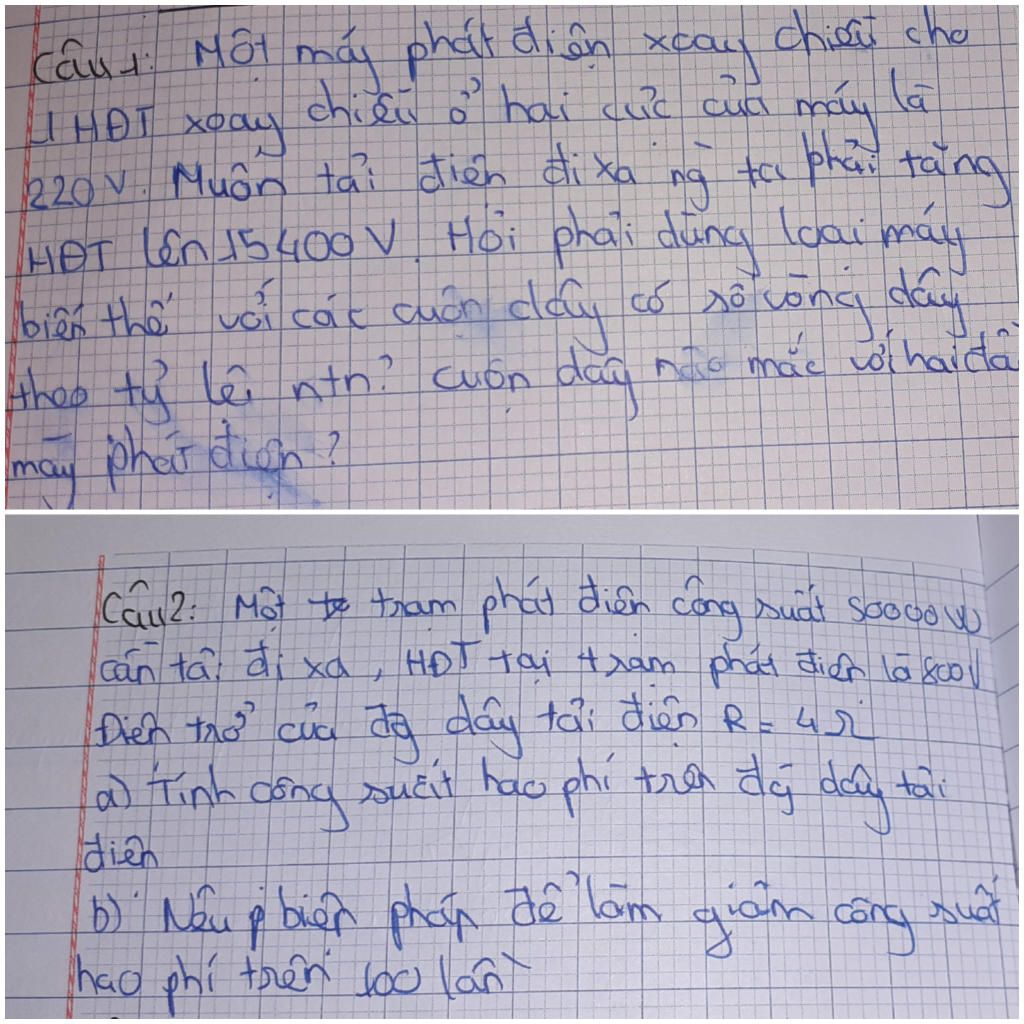 Câu 1: Một máy phát điện xoay chiều cho
1 HĐT xoay chiều ở hai cực của máy là
220V. Muốn tải điện đi xa ng ta phải tăng
HĐT lên 15400V. Hỏi phải dùng loại máy
biến thế với các cuộn dây có số vòng dây
theo tỷ lệ ntn? Cuộn dây nào mắc với hai đầ
máy phát điện?
Câu 2: Một trạm phát điện công suất 50000W
cần tải đi xa, HĐT tại trạm phát điện là 800V
Điện trở của đg dây tải điện R = 4Ω
a) Tính công suất hao phí trên đg dây tải
điện
b) Nêu biện pháp để làm giảm công suất
hao phí trên 100 lần